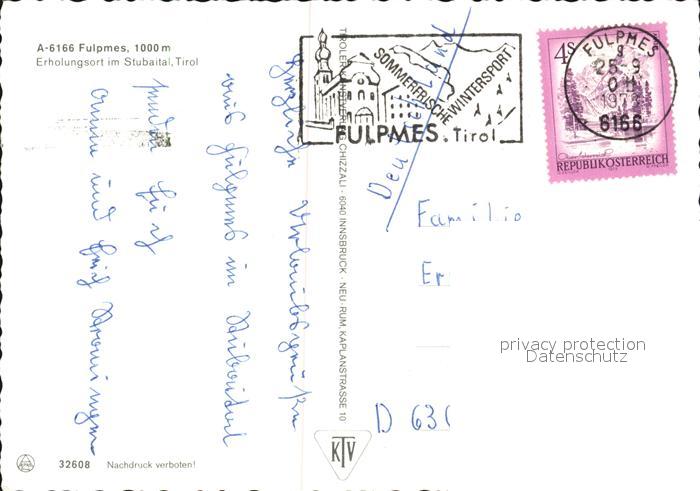 A-6166 Fulpmes, 1000 m
Erholungsort im Stubaital, Tirol
Herzliche Urlaubsgrüße
aus Fulpmes im Stubaital
Anna und
32608 Nachdruck verboten!
TIROLER KUNSTVERLAG CHIZZALI · 6040 INNSBRUCK · NEU-RUM, KAPLANSTRASSE 10
KTV
SOMMERFRISCHE
WINTERSPORT
FULPMES. Tirol
FULPMES
25-9
6166
4S
REPUBLIK ÖSTERREICH
Deutschland
Familie
Er
D 63
privacy protection
Datenschutz